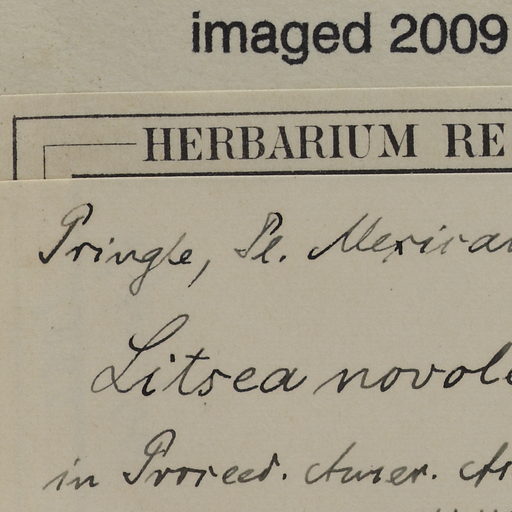 imaged 2009
HERBARIUM RE
Pringle, Pl. Mexican
Litsea novole
in Proceed. Amer.